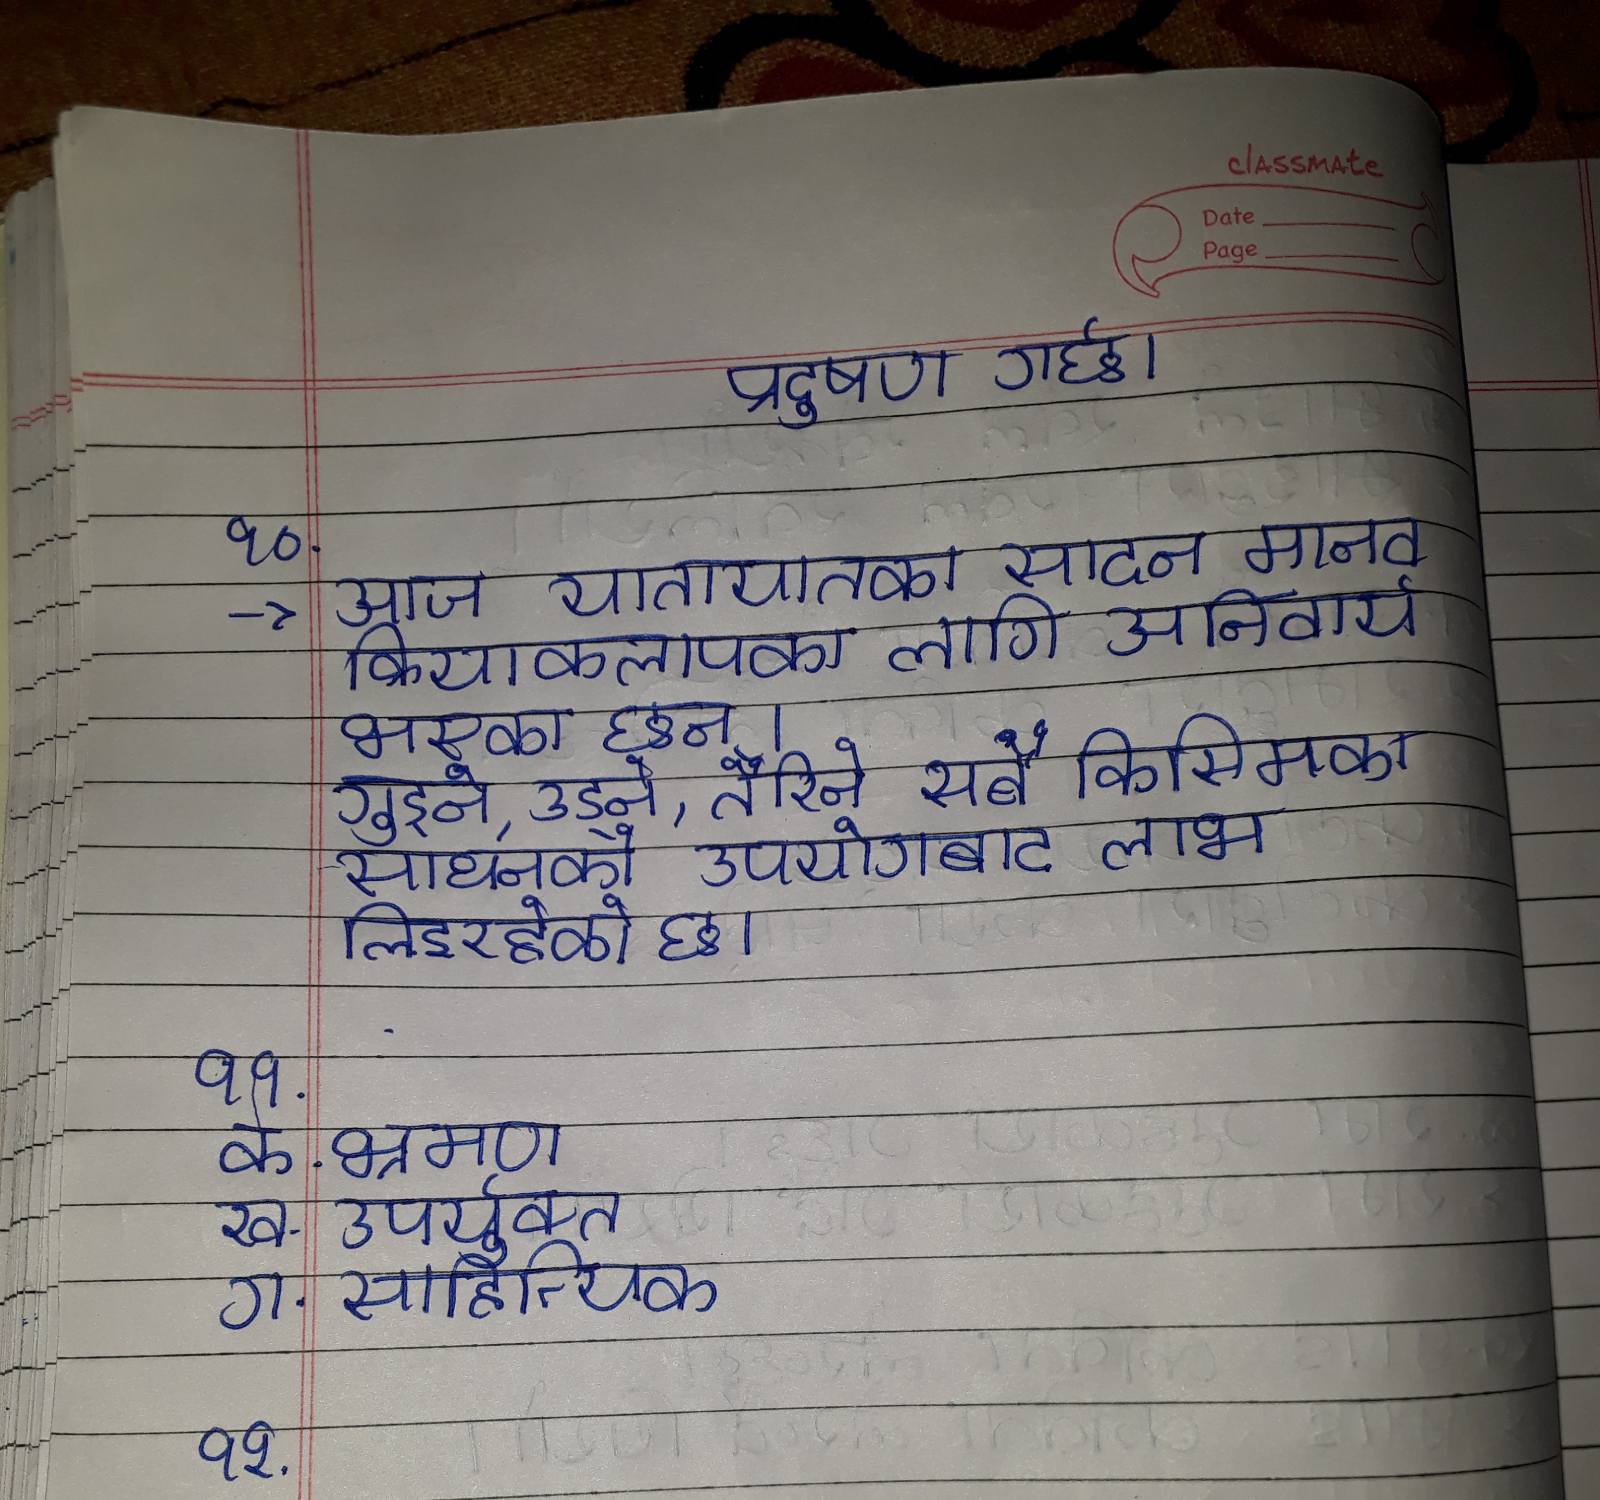 classmate
Date
Page
प्रदुषण गर्छ।
१०.
→ आज यातायातका सादन मानव
क्रियाकलापका लागि अनिवार्य
भएका छन्।
गुड्ने, उड्ने, तैरिने सबै किसिमका
साधनको उपयोगबाट लाभ
लिइरहेको छ।
११.
क. भ्रमण
ख. उपर्युक्त
ग. साहित्यिक
१२.